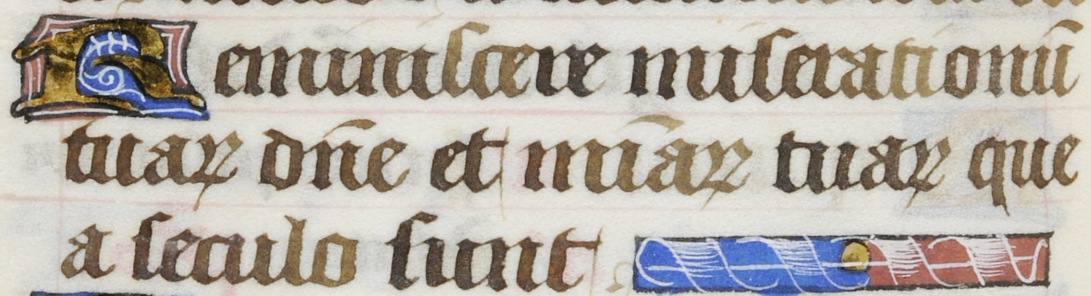 Reminiscere miserationū
tuaꝝ dn̄e et mīaꝝ tuaꝝ que
a seculo sunt